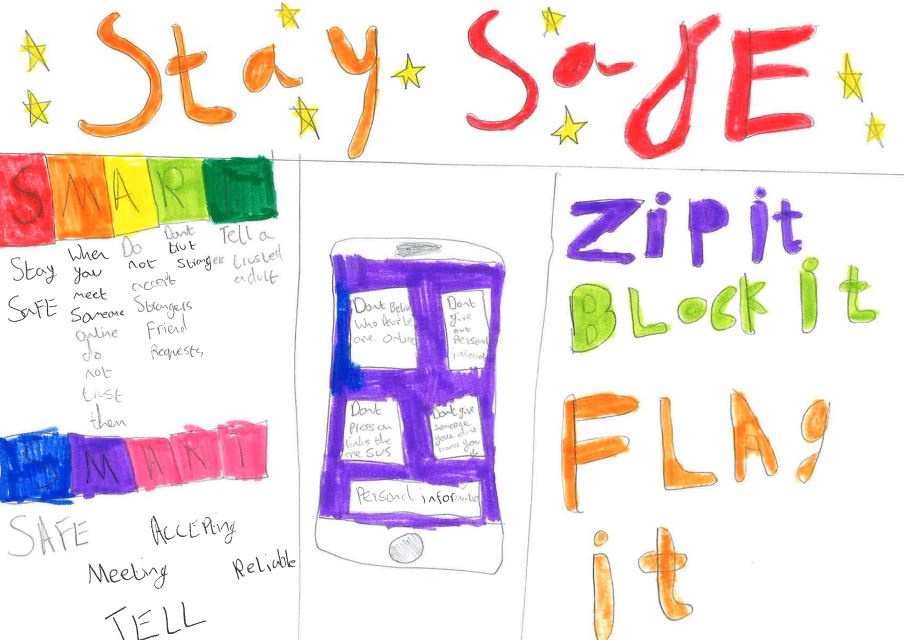 Stay SafE
S M A R T
Stay
SAFE
When
you
meet
Someone
online
do
not
trust
them
Do
not
accept
Strangers
Friend
Requests
Dont
trust
Stranger
Tell a
trusted
adult
Dont Belive
who People
are online
Dont
give
out
Personal
Dont
Press on
links the
are sus
Dont give
someone
you dont
know you
Personal information
S M A R T
SAFE
AccEPting
Meeting
Reliable
TELL
Zip it
BLocK it
FLAg
it